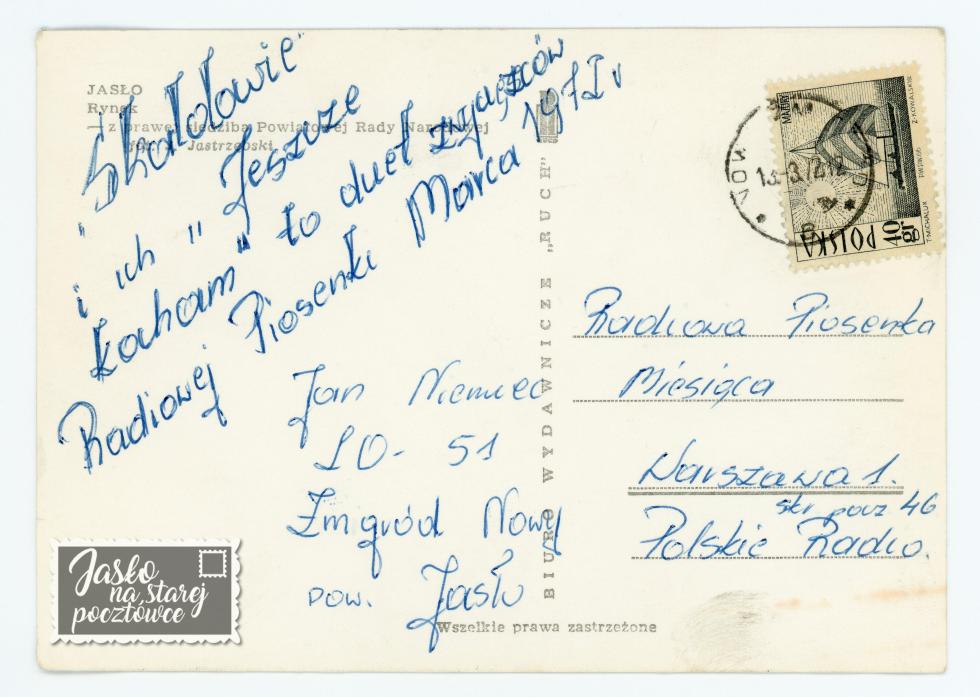 JASŁO
Rynek
— z prawej siedziba Powiatowej Rady Narodowej
fot. Jastrzębski
"Skaldowie"
i ich "Jeszcze
kocham" to duet zwycięzców
Radiowej Piosenki Marca 1972 r
Jan Niemiec
LO - 51
Żmigród Nowy
pow. Jasło
BIURO WYDAWNICZE „RUCH"
Wszelkie prawa zastrzeżone
MARSY
POLSKA
40 gr
Z. KOWALSKI
T. MICHALUK
Radiowa Piosenka
Miesiąca
Warszawa 1.
skr pocz 46
Polskie Radio.
Jasło
na starej
pocztówce